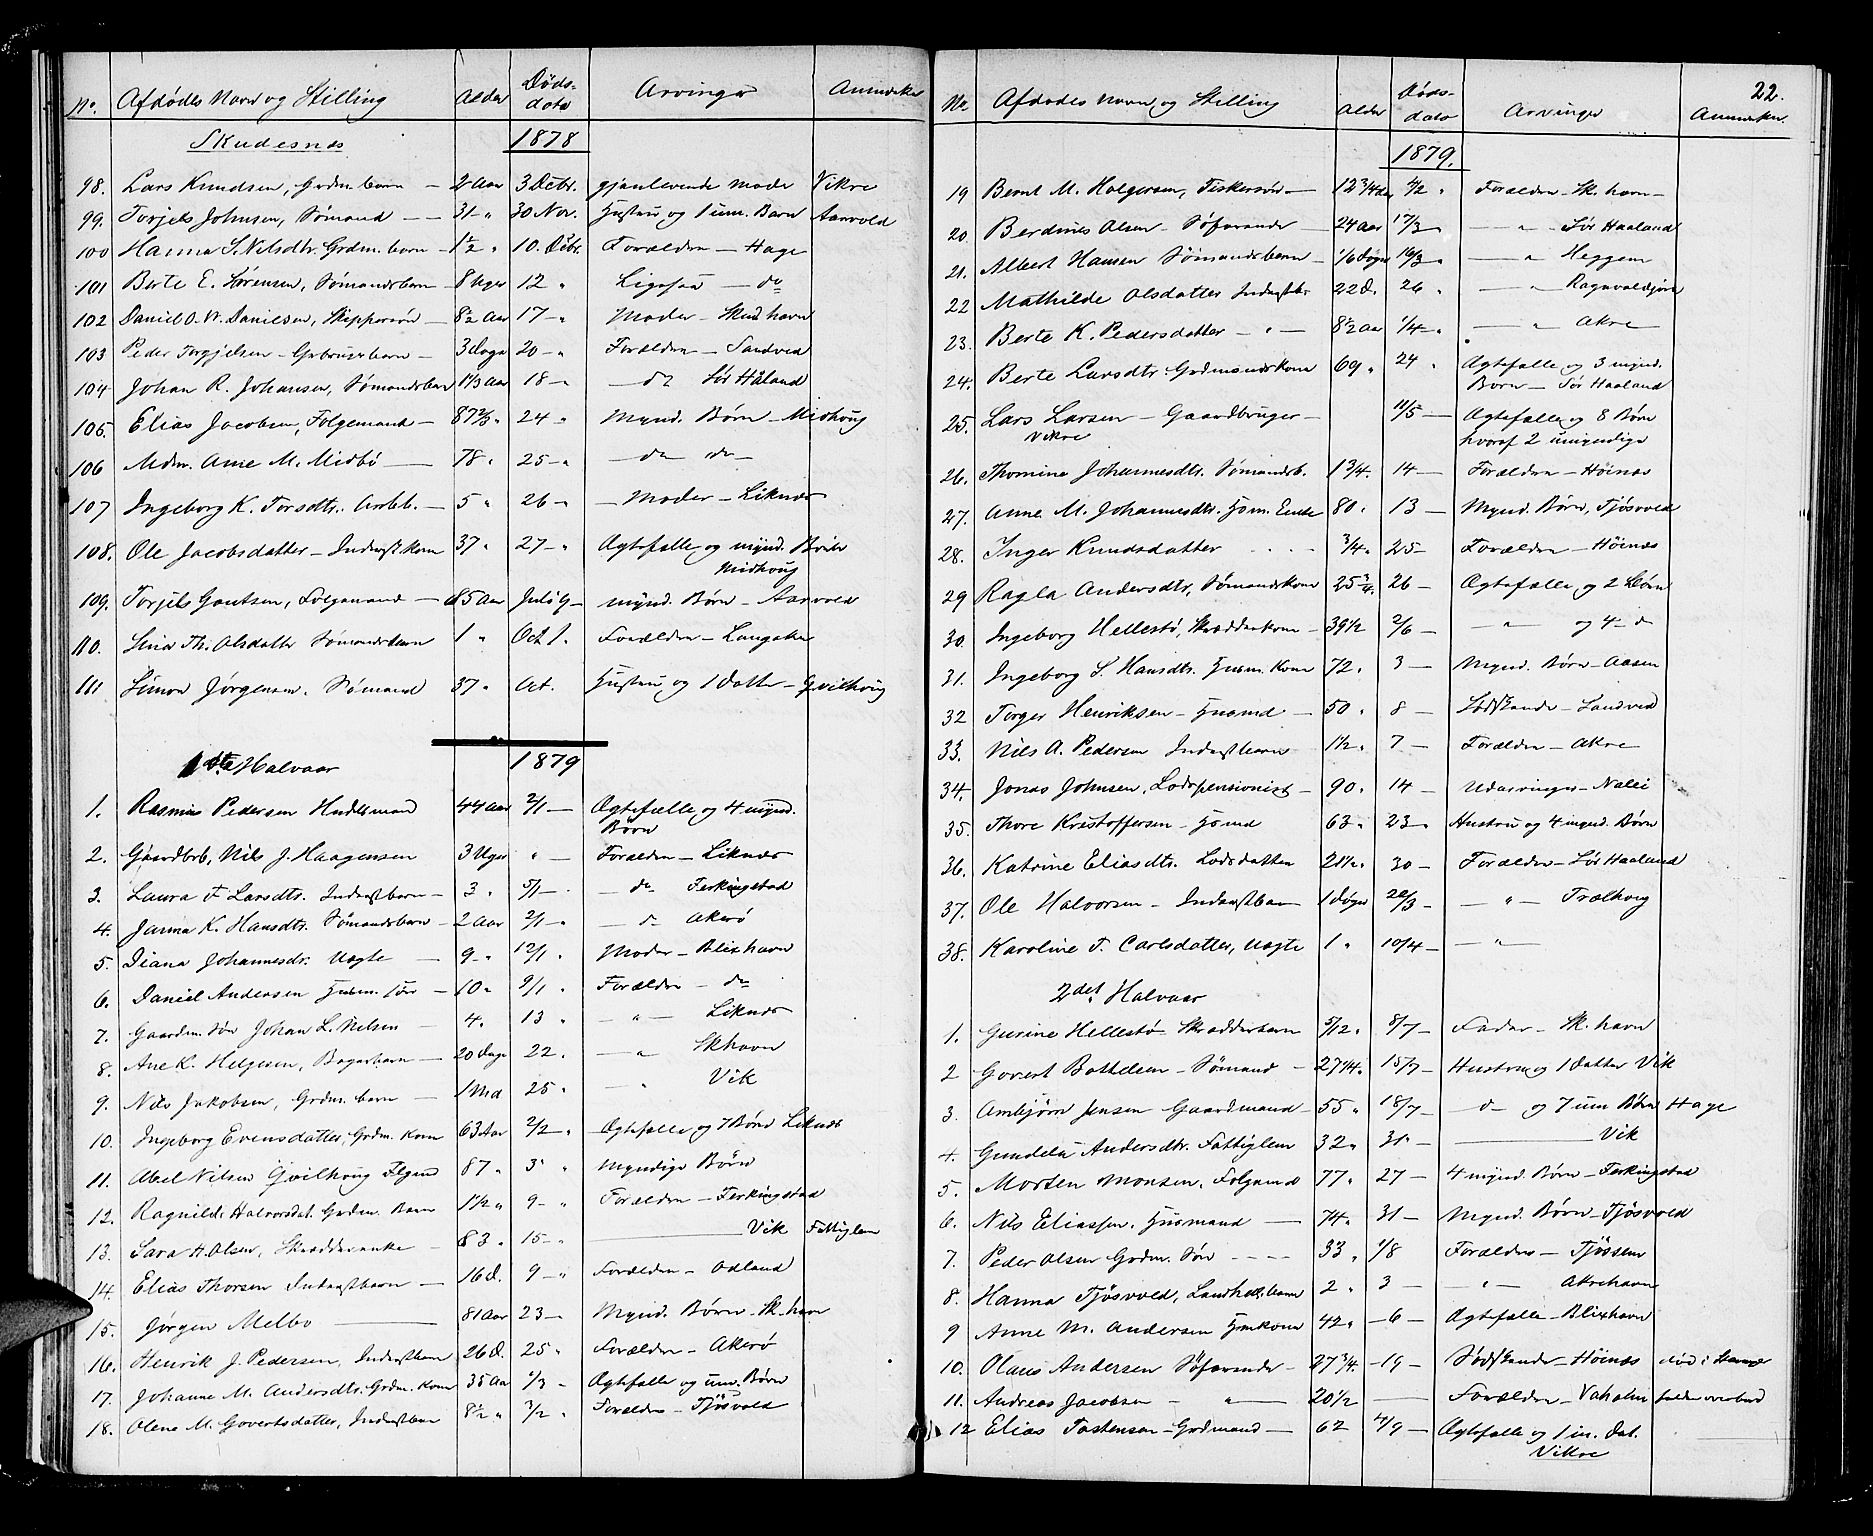 No. Afdødes Navn og Stilling Alder Døds- dato Arvinger Anmærkn
Skudesnæs 1878
98. Lars Knudsen, Grdm. barn — 2 Aar 3 Decbr. gjenlevende Mode Vikre
99. Torjels Johnsen, Sømand — 31 " 30 Nov. Hustru og 1 um. Barn Aarvold
100 Hanna S. Nilsdtr. Grdm. barn - 1½ " 10. Decbr. Forældre — Hage
101 Berte E. Sørensen, Sømandsbarn - 8 Uger 12 " Ligesaa — do
102 Daniel O. W. Danielsen, Skippersøn - 8½ Aar 17 - " Moder - Skudhavn
103 Peder Torgjelsen - Gbrugerbarn - 3 Dage 20 - " Forældre - Sandved
104 Johan R. Johansen, Sømandsbarn 1 1/3 Aar 18 - — do Sør Håland
105. Elias Jacobsen, Folgemand - 87 2/3 " 24 - " Mynd. Børn - Midhoug
106 Mdm. Ane M. Midbø — 78 " 25 - " — do do
107 Ingeborg K. Torsdtr. Arbb. — 5 " 26 - — Moder - Liknæs
108. Ole Jacobsdatter - Inderstkone 37 " 27 - " Ægtefælle og mynd. Børn
Midhoug
109. Torjels Gautsen, Folgemand — 85 Aar Juli 9 - mynd. Børn - Aarvold
110. Sina Th. Olsdatter Sømandsbarn 1 " Oct 1. Forældre - Langaker
111 Simon Jørgensen, Sømand 37 " Oct. Hustru og 1 Datter - Qvilhoug
1ste Halvaar 1879
1. Rasmus Pedersen Handelsmand 44 Aar 2/1 — Ægtefælle og 4 mynd.
Børn
2. Gaardbrb. Nils J. Haagensen 3 Uger " — Forældre - Liknæs
3. Laura F. Larsdtr. Inderstbarn - 3 " 5/1 — — do Ferkingstad
4. Janna K. Hansdtr. Sømandsbarn - 2 Aar 2/1 - " — do Akerø
5. Diana Johannesdr. Uægte — 9 - " 12/1 " Moder - Blixhavn
6. Daniel Andersen Husm. søn - 10 " 9/1 " Forældre — do
7. Gaardm. Søn Johan L. Nilsen — 4 " 13 " — " — Liknæs
8. Ane K. Helgesen, Bagerbarn — 20 Dage 22. — " Skhavn
9. Nils Jakobsen, Grdm. barn — 1 Md 25 " — " Vik
10. Ingeborg Evensdatter, Grdm. Kone 63 Aar 2/2 " Ægtefælle og 7 Børn Liknæs
11. Abel Nilsen Qvilhoug Flgmd 87 " 3 " Myndige Børn
12. Ragnilde Halvorsdat. Grdm. Barn 1½ " 9 - " Forældre - Ferkingstad
13. Sara H. Olsen, Skrædderenke - 83 " 15 - " — Vik Fattiglem
14. Elias Thorsen Inderstbarn — 16 D. 9 - " Forældre - Ødland
15. Jørgen Melbo — 81 Aar 23 - Mynd. Børn - Sk.havn
16. Henrik J. Pedersen, Inderstbarn 26 D. 25 " Forældre - Akerø
17. Johanne M. Andersdtr. Grdm. Kone 35 Aar 1/3 - Ægtefælle og um. Børn
18. Olene M. Govertsdatter, Inderstbarn 8½ " 3/2 " Forældre - Tjøsvold
22.
No. Afdødes Navn og Stilling Alder Døds- dato Arvinger Anmærkn.
1879.
19 Bernt M. Holgersen, Fiskersøn — 12 3/4 Aar 4/2 " Forældre - Sk. havn -
20. Berdines Olsen - Søfarende — 24 Aar 17/3 — — " — Sør Haaland
21. Albert Hansen Sømandsbarn — 1/6 Døgn 16/3 " — " Heggem
22 Mathilde Olsdatter Inderstbr. 22 D. 26 " — " — Ragnvaldsjør
23. Berte K. Pedersdatter — " — 8½ Aar 1/4 - " — " Akre
24. Berte Larsdtr. Grdmandskone 69 " 24 " Ægtefælle og 3 mynd.
Børn — Sør Haaland
25. Lars Larsen — Gaardbruger — 11/5 — Ægtefælle og 8 Børn
Vikre hvoraf 2 umyndige
26. Thomine Johannesdtr. Sømandsb. 1 3/4. 14 — Forældre - Høinæs
27. Anne M. Johannesdtr. Hsm. Enke 80. 13 — Mynd. Børn, Tjøsvold
28. Inger Knudsdatter . . . . 3/4 " 25 - Forældre - Høinæs
29 Ragla Andersdtr, Sømandskone 25 3/4. 26 — Ægtefælle og 2 Børn
30. Ingeborg Hellestø, Skrædderkone - 39½ 2/6 — — " og 4 - do
31. Ingeborg S. Hansdtr. Husm. Kone 72. 3 — Mynd. Børn - Aasen
32 Torger Henriksen - Husmd — 50 " 8 — Sødskende - Sandved
33. Nils A. Pedersen Inderstbarn 1½ " 7 — Forældre — Akre
34. Jonas Johnsen, Lodspensionist - 90 " 14 — Udarvinger - Nalei
35. Thore Kristoffersen - Hsmd 63 " 23 " Hustru og 4 mynd. Børn
36. Katrine Eliasdtr. Lodsdatter 21½ " 30 — Forældre - Sør Haaland
37. Ole Halvorsen - Inderstbarn 1 Døgn 20/3 - — " — Trælhoug
38. Karoline T. Carlsdatter, Uægte 1 " 10/4 — — "
2det Halvaar
1. Gurine Hellestø Skrædderbarn 5/12 " 8/7 — Fader - Sk. havn
2 Govert Bottelsen - Sømand — 27 1/4. 15/7 — Hustru og 1 Datter Vik
3. Ambjørn Jensen Gaardmand - 55 " 18/7 — do og 7 um Børn Hage
4. Gundela Andersdtr. Fattiglem 32 " 31 - — Vik
5. Morten Monsen, Folgmd 77 " 27 — 4 mynd. Børn - Ferkingstad
6. Nils Eliassen. Husmand — 74 " 31 — Mynd. Børn - Tjøsvold
7. Peder Olsen Grdm. Søn - - - - 33 " 1/8 Forældre - Tjøssem
8. Hanna Tjøsvold, Landhdl. barn 2 " 3 — — " — Akrehavn
9 Anne M. Andersen Hmkone 42 " - 6 — Ægtefælle - Blixhavn
10. Olaus Andersen Søfarende - 27 3/4. - 19 — Sødskende - Høinæs
11. Andreas Jacobsen - " — 20½ — Forældre - Vaholm falden overbord
12 Elias Tostensen - Grdmand — 62 4/9 — Ægtefælle og 1 m. Dat.
Vikre